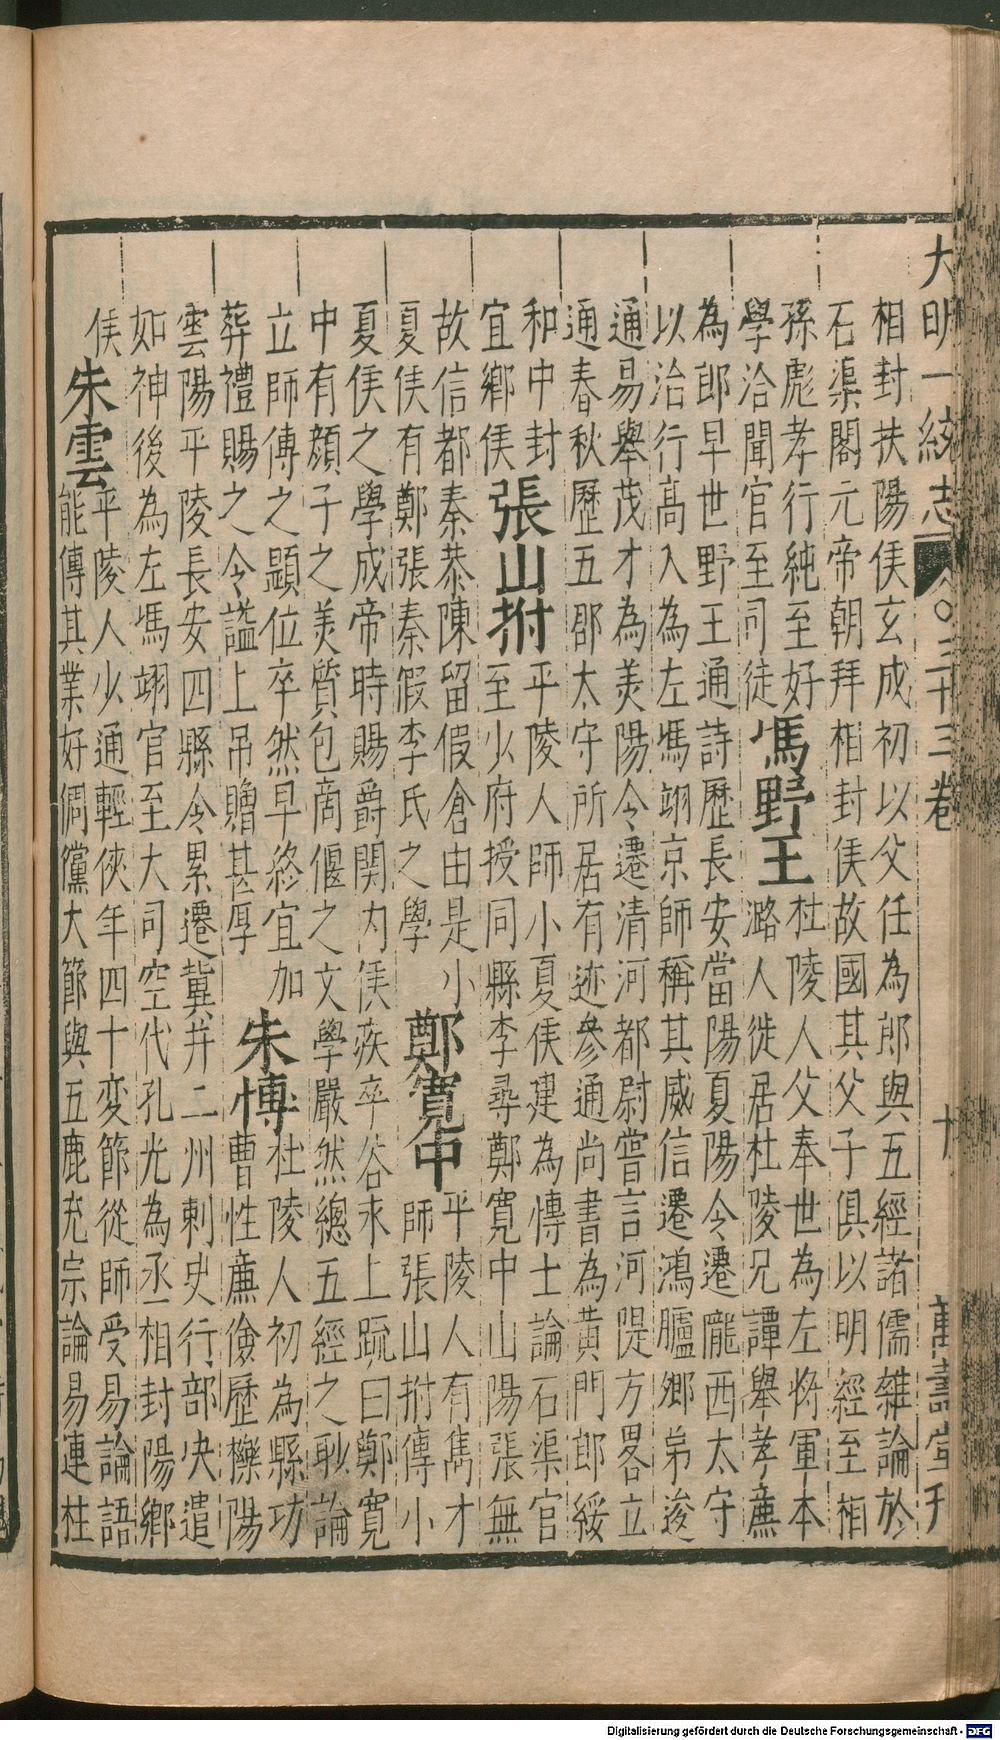 大明一統志 三十三卷 十 萬壽堂刊
相封扶陽侯玄成初以父任為郎與五經諸儒雜論於
石渠閣元帝朝拜相封侯故國其父子俱以明經至相
孫彪孝行純至好
學洽聞官至司徒
馮野王
杜陵人父奉世為左將軍本
潞人徙居杜陵兄譚舉孝廉
為郎早世野王通詩歷長安當陽夏陽令遷隴西太守
以治行高入為左馮翊京師稱其威信遷鴻臚鄉弟逡
通易舉茂才為美陽令遷清河都尉嘗言河隄方畧立
通春秋歷五郡太守所居有迹參通尚書為黃門郎綏
和中封
宜鄉侯
張山拊
平陵人師小夏侯建為博士論石渠官
至少府授同縣李尋鄭寬中山陽張無
故信都秦恭陳留假倉由是小
夏侯有鄭張秦假李氏之學
鄭寬中
平陵人有雋才
師張山拊傳小
夏侯之學成帝時賜爵関內侯疾卒谷永上疏曰鄭寬
中有顏子之美質包商偃之文學嚴然總五經之眇論
立師傅之顯位卒然早終宜加
葬禮賜之令謚上吊贈甚厚
朱博
杜陵人初為縣功
曹性廉儉歷櫟陽
雲陽平陵長安四縣令累遷冀并二州刺史行部决遣
如神後為左馮翊官至大司空代孔光為丞相封陽鄉
侯
朱雲
平陵人少通輕俠年四十変節從師受易論語
能傳其業好倜儻大節與五鹿充宗論易連柱
Digitalisierung gefördert durch die Deutsche Forschungsgemeinschaft - DFG